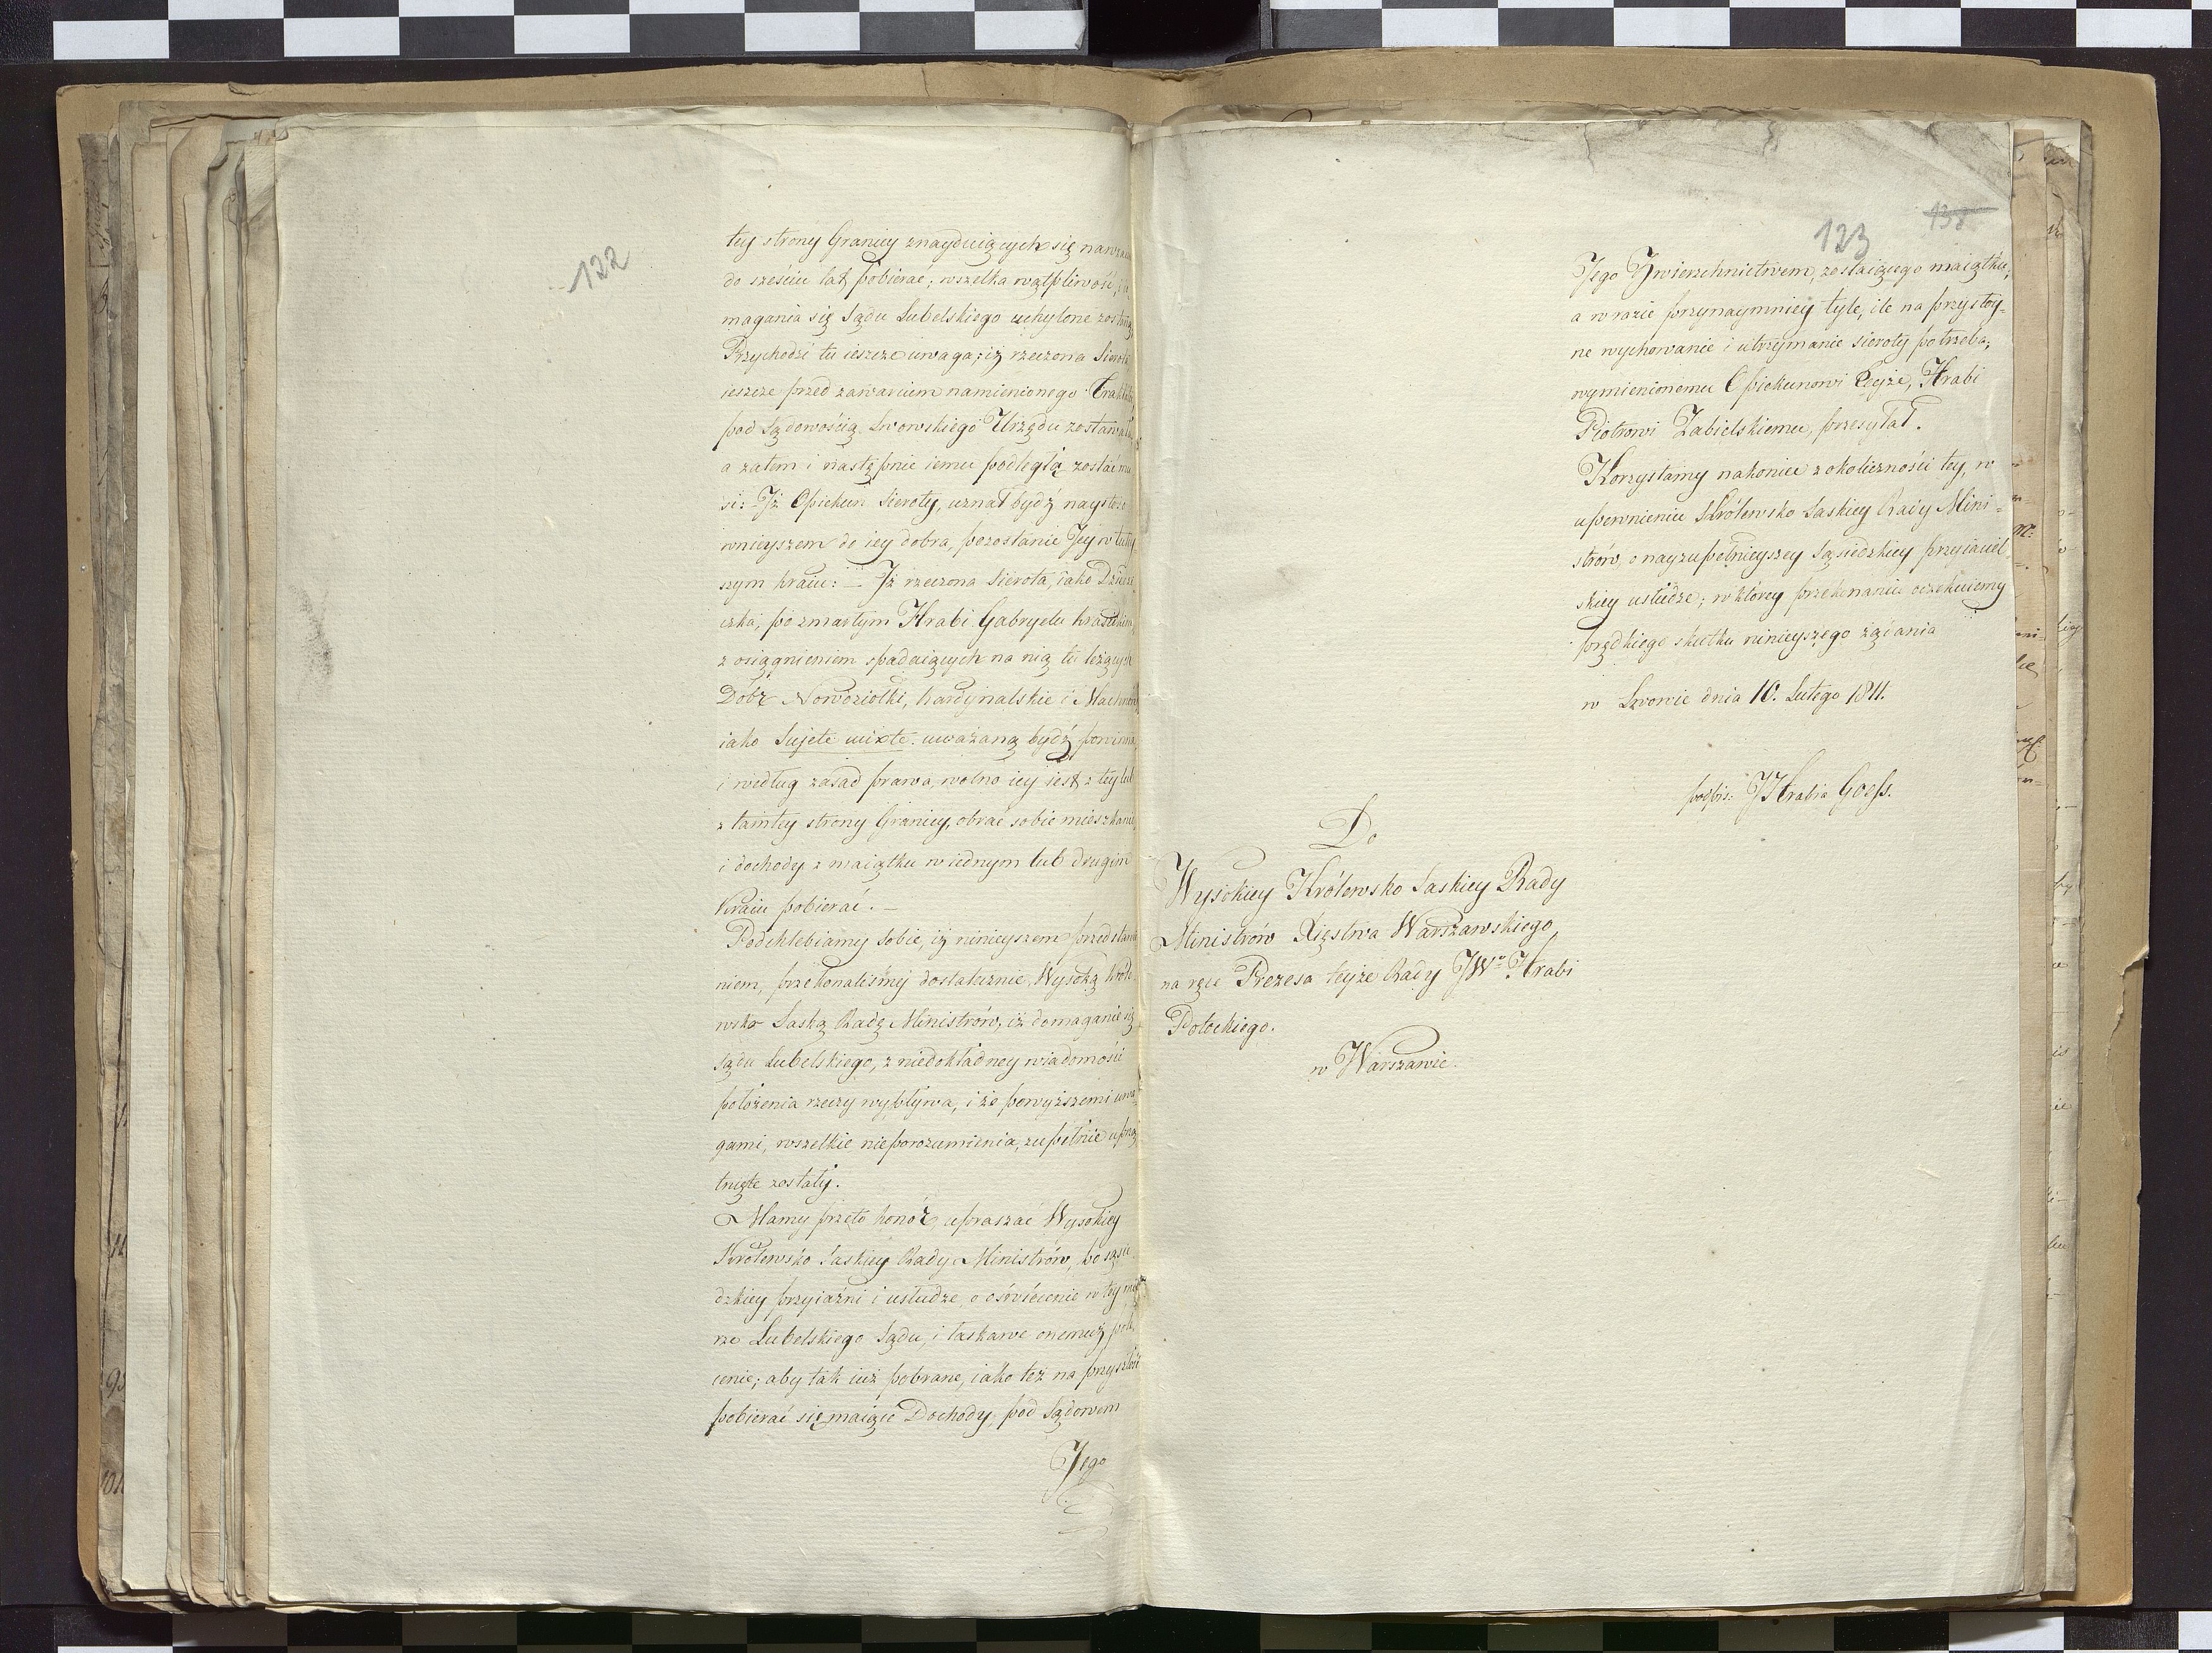 122
tey strony Granicy znayduiących się nawza
do sześciu lat pobierać; wszelka wątpliwość,
magania się Sądu Lubelskiego uchylone zostaną
Przychodzi tu ieszcze uwaga; iż rzeczona Sierota
ieszcze przed zawarciem namienionego Traktatu
pod Sądowością Lwowskiego Urzędu zostawała,
a zatem i następnie iemu podległą zostać mu
si: Iż Opiekun Sieroty, uznał bydź naystoso
wnieyszem do iey dobra, pozostanie Jey w tutey
szym kraiu: – Iż rzeczona Sierota, iako Dziedzi
czka, po zmarłym Hrabi Gabryelu
z osiągnieniem spadaiących na nią tu leżących
Dóbr Nowosiołki, Kardynalskie i
iako Sujete mixte uważaną bydź powinna,
i według zasad prawa, wolno iey iest z tey lub
z tamtey strony Granicy, obrać sobie mieszkanie,
i dochody z maiątku w iednym lub drugim
Kraiu pobierać. –
Podchlebiamy sobie, iż ninieyszem przedstawie
niem, przekonaliśmy dostatecznie Wysoką Króle
wsko Saską Radę Ministrów, iż domaganie się
Sądu Lubelskiego, z niedokładney wiadomości
położenia rzeczy wypływa, i że powyższemi uwa
gami, wszelkie nieporozumienia, zupełnie uprzą
tnięte zostały.
Mamy przeto honór, upraszać Wysokiey
Królewsko Saskiey Rady Ministrów, po sąsie
dzkiey przyiaźni i usłudze, o oświecenie w tey mie
rze Lubelskiego Sądu, i łaskawe onemuż pole
cenie; aby tak iuż pobrane, iako też na przyszłość
pobierać się maiące Dochody, pod Sądowem
Jego
123
138
Jego Zwierzchnictwem, zostaiącego maiątku,
a w razie przynaymniey tyle, ile na przystoy-
ne wychowanie i utrzymanie sieroty potrzeba;
wymienionemu Opiekunowi Teyże, Hrabi
Piotrowi Zabielskiemu, przesyłał.
Korzystamy nakoniec z okoliczności tey, w
upewnieniu Królewsko Saskiey Rady Mini-
strów, o nayzupełnieyszey Sąsiedzkiey przyiaciel
skiey usłudze; w którey przekonaniu oczekuiemy
prędkiego skutku ninieyszego żądania
w Lwowie dnia 10. Lutego 1811.
podpis: Hrabia Goeſs.
Do
Wysokiey Królewsko Saskiey Rady
Ministrów Xięstwa Warszawskiego,
na ręce Prezesa teyże Rady JWo Hrabi
Potockiego.
w Warszawie.